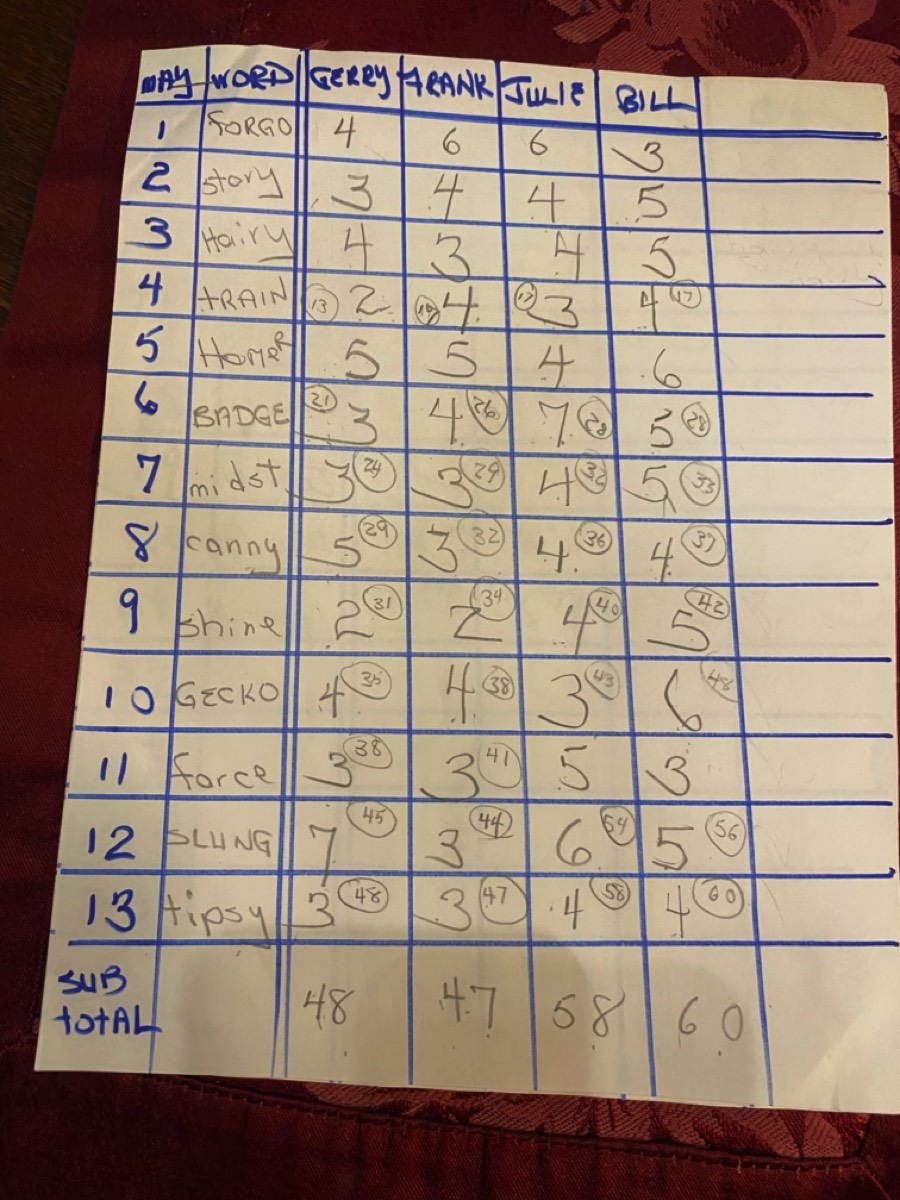 MAY WORD GERRY FRANK JULIE BILL
1 FORGO 4 6 6 3
2 story 3 4 4 5
3 Hairy 4 3 4 5
4 tRAIN 13 2 4 17 3 4 17
5 HomeR 5 5 4 6
6 BADGE 21 3 4 26 7 28 5 28
7 midst 3 24 3 29 4 32 5 33
8 canny 5 29 3 32 4 36 4 37
9 shine 2 31 2 34 4 40 5 42
10 GECKO 4 35 4 38 3 43 6 48
11 force 3 38 3 41 5 3
12 SLUNG 7 45 3 44 6 54 5 56
13 tipsy 3 48 3 47 4 58 4 60
SUB
TOTAL 48 47 58 60